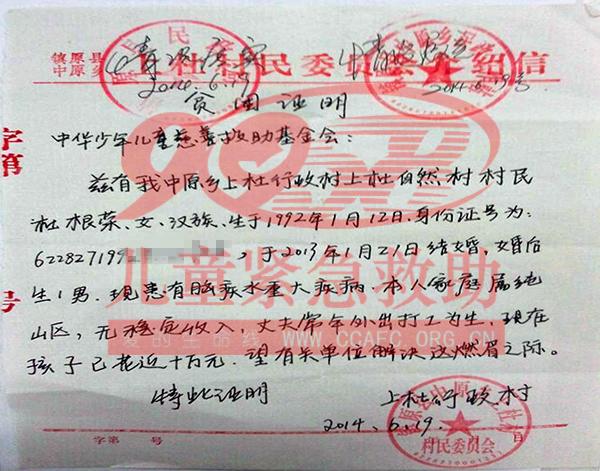 镇原县
中原乡
上杜村民委员会介绍信
情况属实
2014.6.19
2014.6.19号
贫困证明
中华少年儿童慈善救助基金会:
兹有我中原乡上杜行政村上杜自然村村民
杜根荣、女、汉族、生于1992年1月12日.身份证号为:
622827199 ,于2013年1月21日结婚,婚后
生1男.现患有脑疾水重大疾病.本人家庭属纯
山区,无稳定收入,丈夫常年外出打工为生,现在
孩子已花近十万元.望有关单位解决这燃眉之际。
特此证明
上杜行政村
2014.6.19.
字第 号
日
字第
号
村民委员会
儿童紧急救助
爱的生命线 WWW.CCAFC.ORG.CN